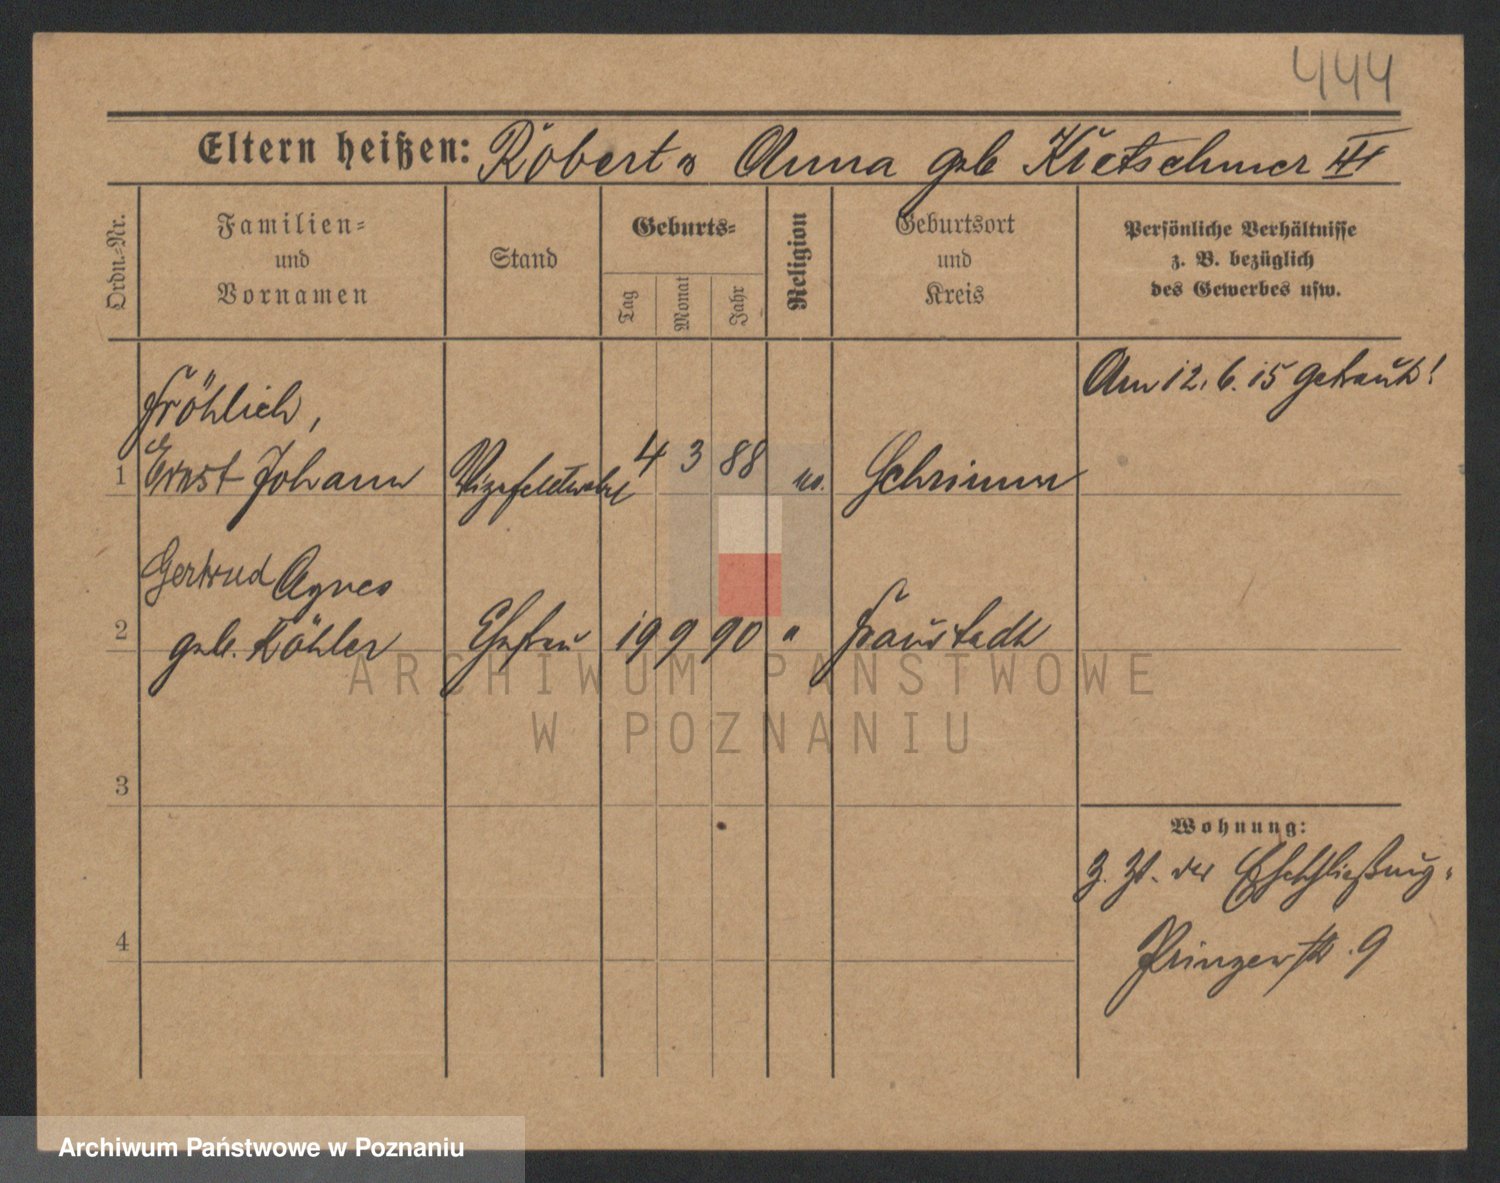 444
Eltern heißen: Robert u Anna geb Kretschmer III
Ordn.=Nr.
Familien=
und
Vornamen
Stand
Geburts=
Tag
Monat
Jahr
Religion
Geburtsort
und
Kreis
Persönliche Verhältnisse
z. B. bezüglich
des Gewerbes usw.
Am 12. 6. 15 getraut!
Fröhlich,
1 Ernst Johann Vizefeldwebel 4 3 88 Schrimm
Gertrud Agnes
2 geb. Köhler Ehefrau 19 9 90 " Fraustadt
ARCHIWUM PAŃSTWOWE
W POZNANIU
3
Wohnung:
z. Zt. der Eheschließung:
4
Prinzenstr. 9
Archiwum Państwowe w Poznaniu